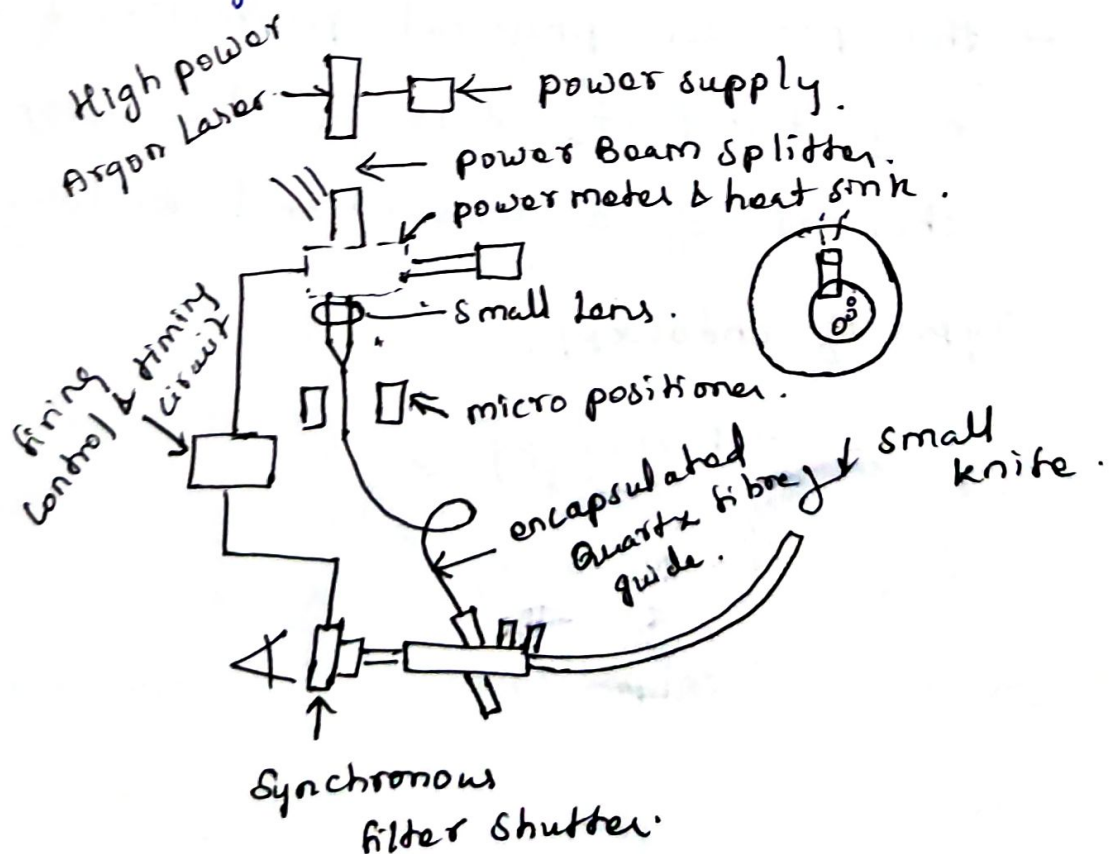 High power
Argon Laser
power supply.
power Beam splitter.
power meter & heat sink.
Small Lens.
micro positioner.
firing
control & timing
circuit
encapsulated
Quartz fibre
guide.
small
knife.
Synchronous
filter shutter.